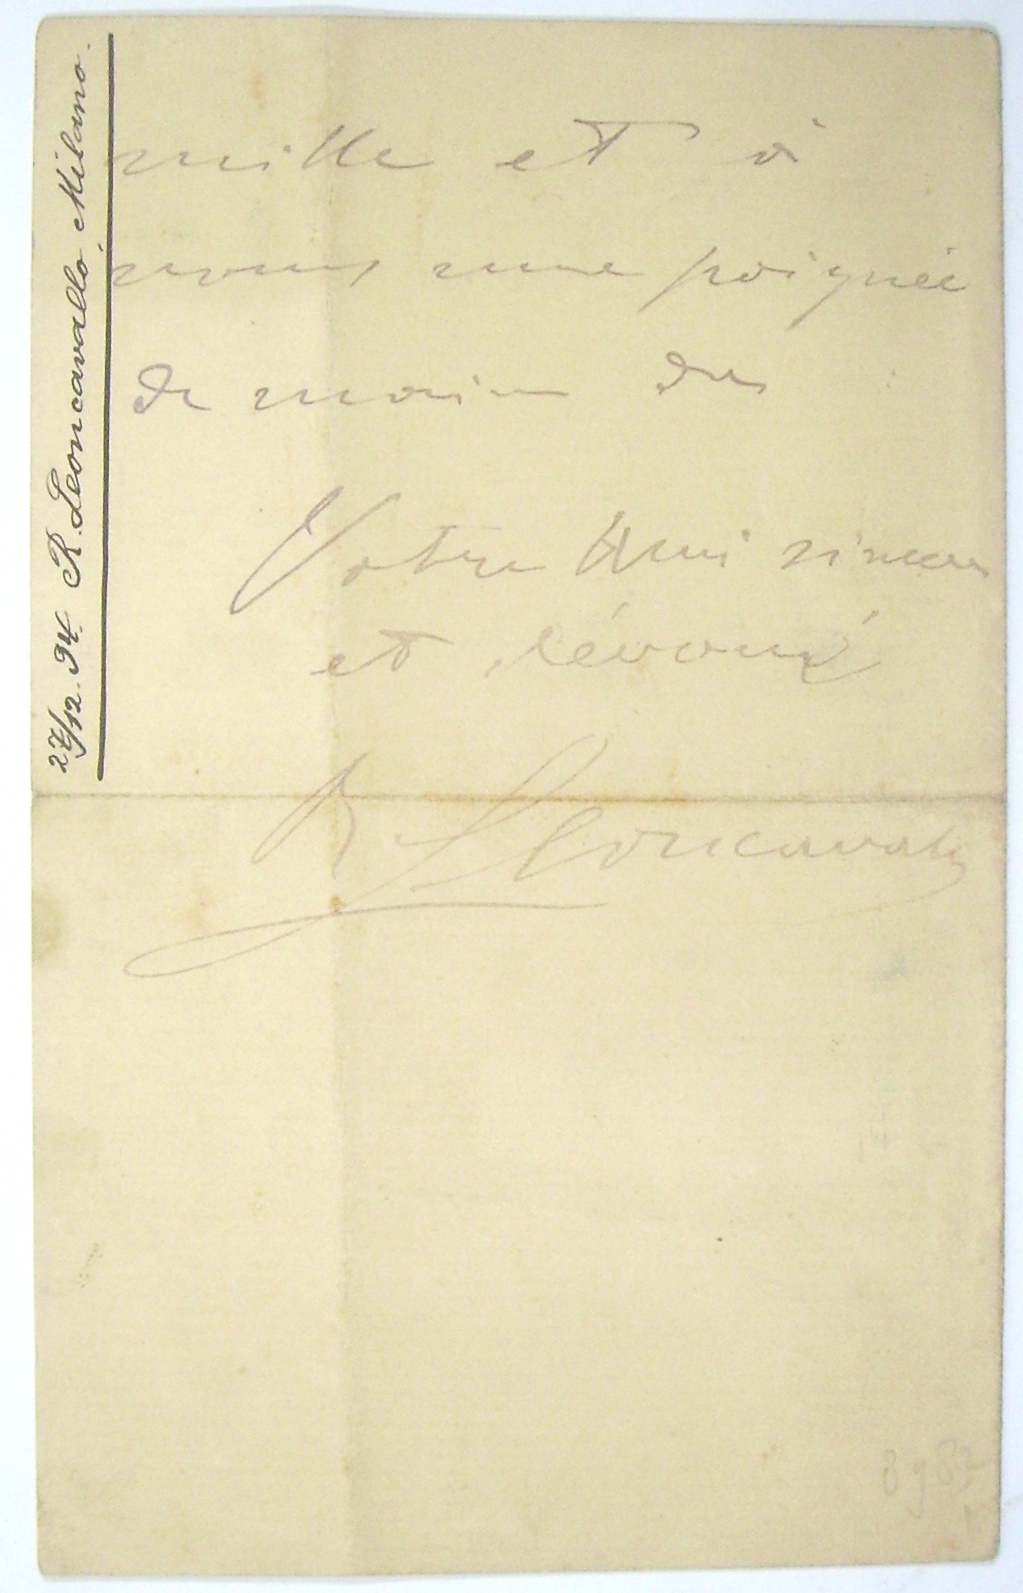 27/12. 94. R. Leoncavallo, Milano.
mille et à
vous une poignée
de main du
Votre Ami sincere
et dévoué
R Leoncavallo